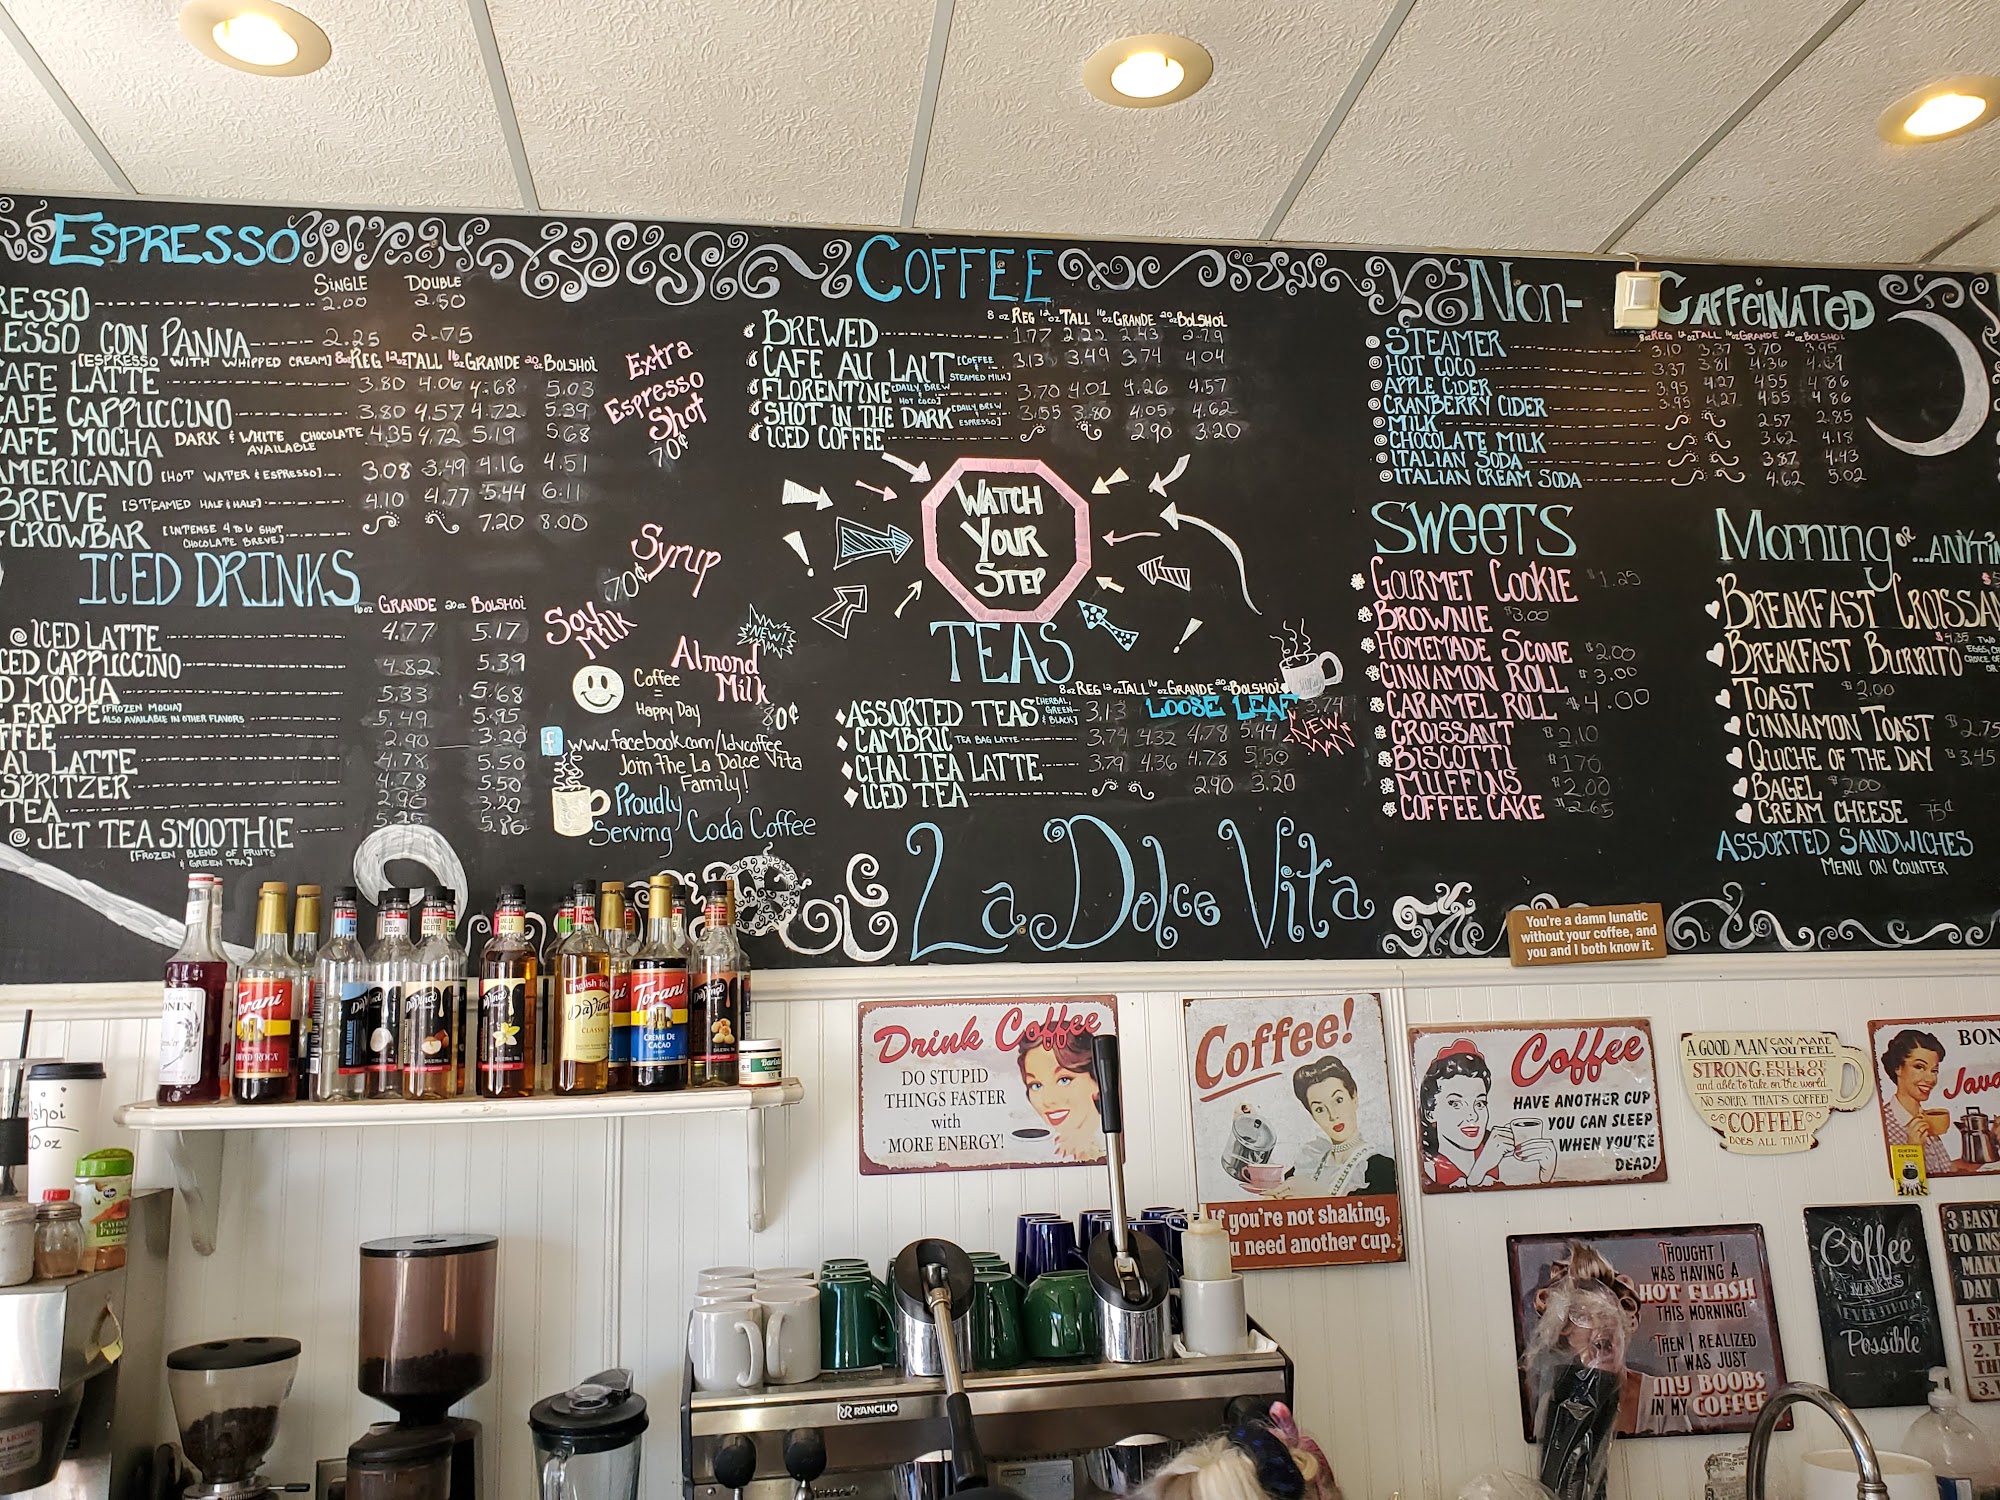 ESPRESSO
SINGLE DOUBLE
RESSO 2.00 2.50
ESSO CON PANNA 2.25 2.75
[ESPRESSO WITH WHIPPED CREAM] 8oz REG 12oz TALL 16oz GRANDE 20oz BOLSHOI
CAFE LATTE 3.80 4.06 4.68 5.03
CAFE CAPPUCCINO 3.80 4.57 4.72 5.39
CAFE MOCHA DARK & WHITE CHOCOLATE AVAILABLE 4.35 4.72 5.19 5.68
AMERICANO [HOT WATER & ESPRESSO] 3.08 3.49 4.16 4.51
BREVE [STEAMED HALF & HALF] 4.10 4.77 5.44 6.11
CROWBAR [INTENSE 4 TO 6 SHOT CHOCOLATE BREVE] 7.20 8.00
ICED DRINKS
16oz GRANDE 20oz BOLSHOI
ICED LATTE 4.77 5.17
CED CAPPUCCINO 4.82 5.39
D MOCHA 5.33 5.68
FRAPPE [FROZEN MOCHA] ALSO AVAILABLE IN OTHER FLAVORS 5.49 5.95
FFEE 2.90 3.20
AI LATTE 4.78 5.50
SPRITZER 4.78 5.50
TEA 2.90 3.20
JET TEA SMOOTHIE 5.25 5.86
[FROZEN BLEND OF FRUITS & GREEN TEA]
Extra
Espresso
Shot
70¢
Syrup
70¢
Soy
Milk
NEW!
Almond
Milk
80¢
Coffee
=
Happy Day
f www.facebook.com/ldvcoffee
Join the La Dolce Vita
Family!
Proudly
Serving Coda Coffee
COFFEE
8 oz REG 12 oz TALL 16 oz GRANDE 20 oz BOLSHOI
BREWED 1.77 2.22 2.43 2.79
CAFE AU LAIT [COFFEE & STEAMED MILK] 3.13 3.49 3.74 4.04
FLORENTINE [DAILY BREW & HOT COCO] 3.70 4.01 4.26 4.57
SHOT IN THE DARK [DAILY BREW ESPRESSO] 3.55 3.80 4.05 4.62
ICED COFFEE 2.90 3.20
WATCH
YOUR
STEP
TEAS
8oz REG 12oz TALL 16oz GRANDE 20oz BOLSHOI
ASSORTED TEAS [HERBAL, GREEN & BLACK] 3.13 LOOSE LEAF 3.74
CAMBRIC TEA BAG LATTE 3.74 4.32 4.78 5.44
NEW
CHAI TEA LATTE 3.79 4.36 4.78 5.50
ICED TEA 2.90 3.20
La Dolce Vita
Non-Caffeinated
8oz REG 12oz TALL 16oz GRANDE 20oz BOLSHOI
STEAMER 3.10 3.37 3.70 3.95
HOT COCO 3.37 3.81 4.36 4.69
APPLE CIDER 3.95 4.27 4.55 4.86
CRANBERRY CIDER 3.95 4.27 4.55 4.86
MILK 2.57 2.85
CHOCOLATE MILK 3.62 4.18
ITALIAN SODA 3.87 4.43
ITALIAN CREAM SODA 4.62 5.02
SWEETS
GOURMET COOKIE $1.25
BROWNIE $3.00
HOMEMADE SCONE $2.00
CINNAMON ROLL $3.00
CARAMEL ROLL $4.00
CROISSANT $2.10
BISCOTTI $1.70
MUFFINS $2.00
COFFEE CAKE $2.65
Morning OR ...ANYTI
BREAKFAST CROISSAN
BREAKFAST BURRITO $4.35 TWO
TOAST $2.00
CINNAMON TOAST $2.75
QUICHE OF THE DAY $3.45
BAGEL $2.00
CREAM CHEESE 75¢
ASSORTED SANDWICHES
MENU ON COUNTER
You're a damn lunatic
without your coffee, and
you and I both know it.
Torani
DaVinci
DaVinci
DaVinci
English Toffee
DaVinci
CLASSIC
Torani
CREME DE
CACAO
DaVinci
lshoi
20 oz
Drink Coffee
DO STUPID
THINGS FASTER
with
MORE ENERGY!
Coffee!
If you're not shaking,
you need another cup.
Coffee
HAVE ANOTHER CUP
YOU CAN SLEEP
WHEN YOU'RE
DEAD!
A GOOD MAN CAN MAKE YOU FEEL
STRONG, FULL OF ENERGY
and able to take on the world
NO SORRY, THAT'S COFFEE!
COFFEE
DOES ALL THAT!
BON
Java
THOUGHT I
WAS HAVING A
HOT FLASH
THIS MORNING!
THEN I REALIZED
IT WAS JUST
MY BOOBS
IN MY COFFEE
Coffee
MAKES
EVERYTHING
Possible
3 EASY
TO INS
MAKE
DAY
1. S
THE
2.
TH
3.
RANCILIO